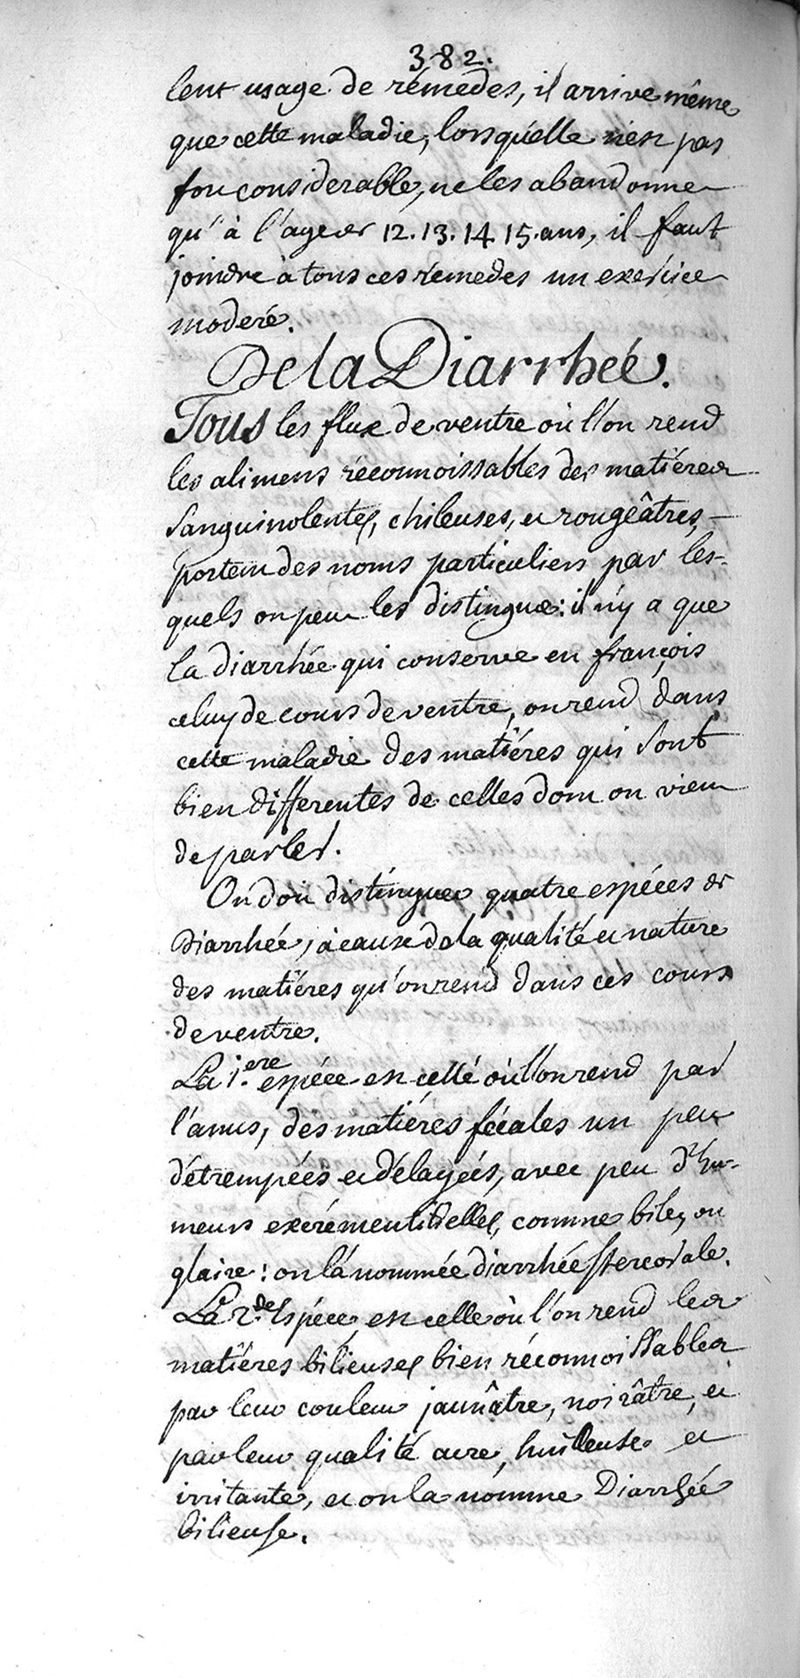 382.
lent usage de rémedes, il arrive même
que cette maladie, lorsquélle n'est pas
fort considerable, ne les abandonne
qu'à l'age de 12. 13. 14. 15. ans, il faut
joindre à tous ces rémedes un exercice
moderé.
De la Diarrhée.
Tous les flux de ventre où l'on rend
les alimens réconnoissables des matiéres
sanguinolentes, chileuses, et rougeâtres,
portent des noms particuliers par les-
quels on peut les distinguer: il n'y a que
la diarrhée qui conserve en françois
celuy de cours de ventre, on rend dans
cette maladie des matiéres qui sont
bien differentes de celles dont on vient
de parler.
On doit distinguer quatre espéces de
Diarrhée, à cause de la qualité et nature
des matiéres qu'on rend dans ces cours
de ventre.
La 1.ere espéce est celle où l'on rend par
l'anus, des matiéres fécales un peu
détrempées et délayées, avec peu d'hu-
meurs excrémentitielles, comme bile, ou
glaire: on la nommée diarrhée stercorale.
La 2.de Espéce, est celle où l'on rend les
matiéres bilieuses bien réconnoissables
par leur couleur jaunâtre, noirâtre, et
par leur qualité acre, huileuse et
irritante, et on la nomme Diarrhée
bilieuse.